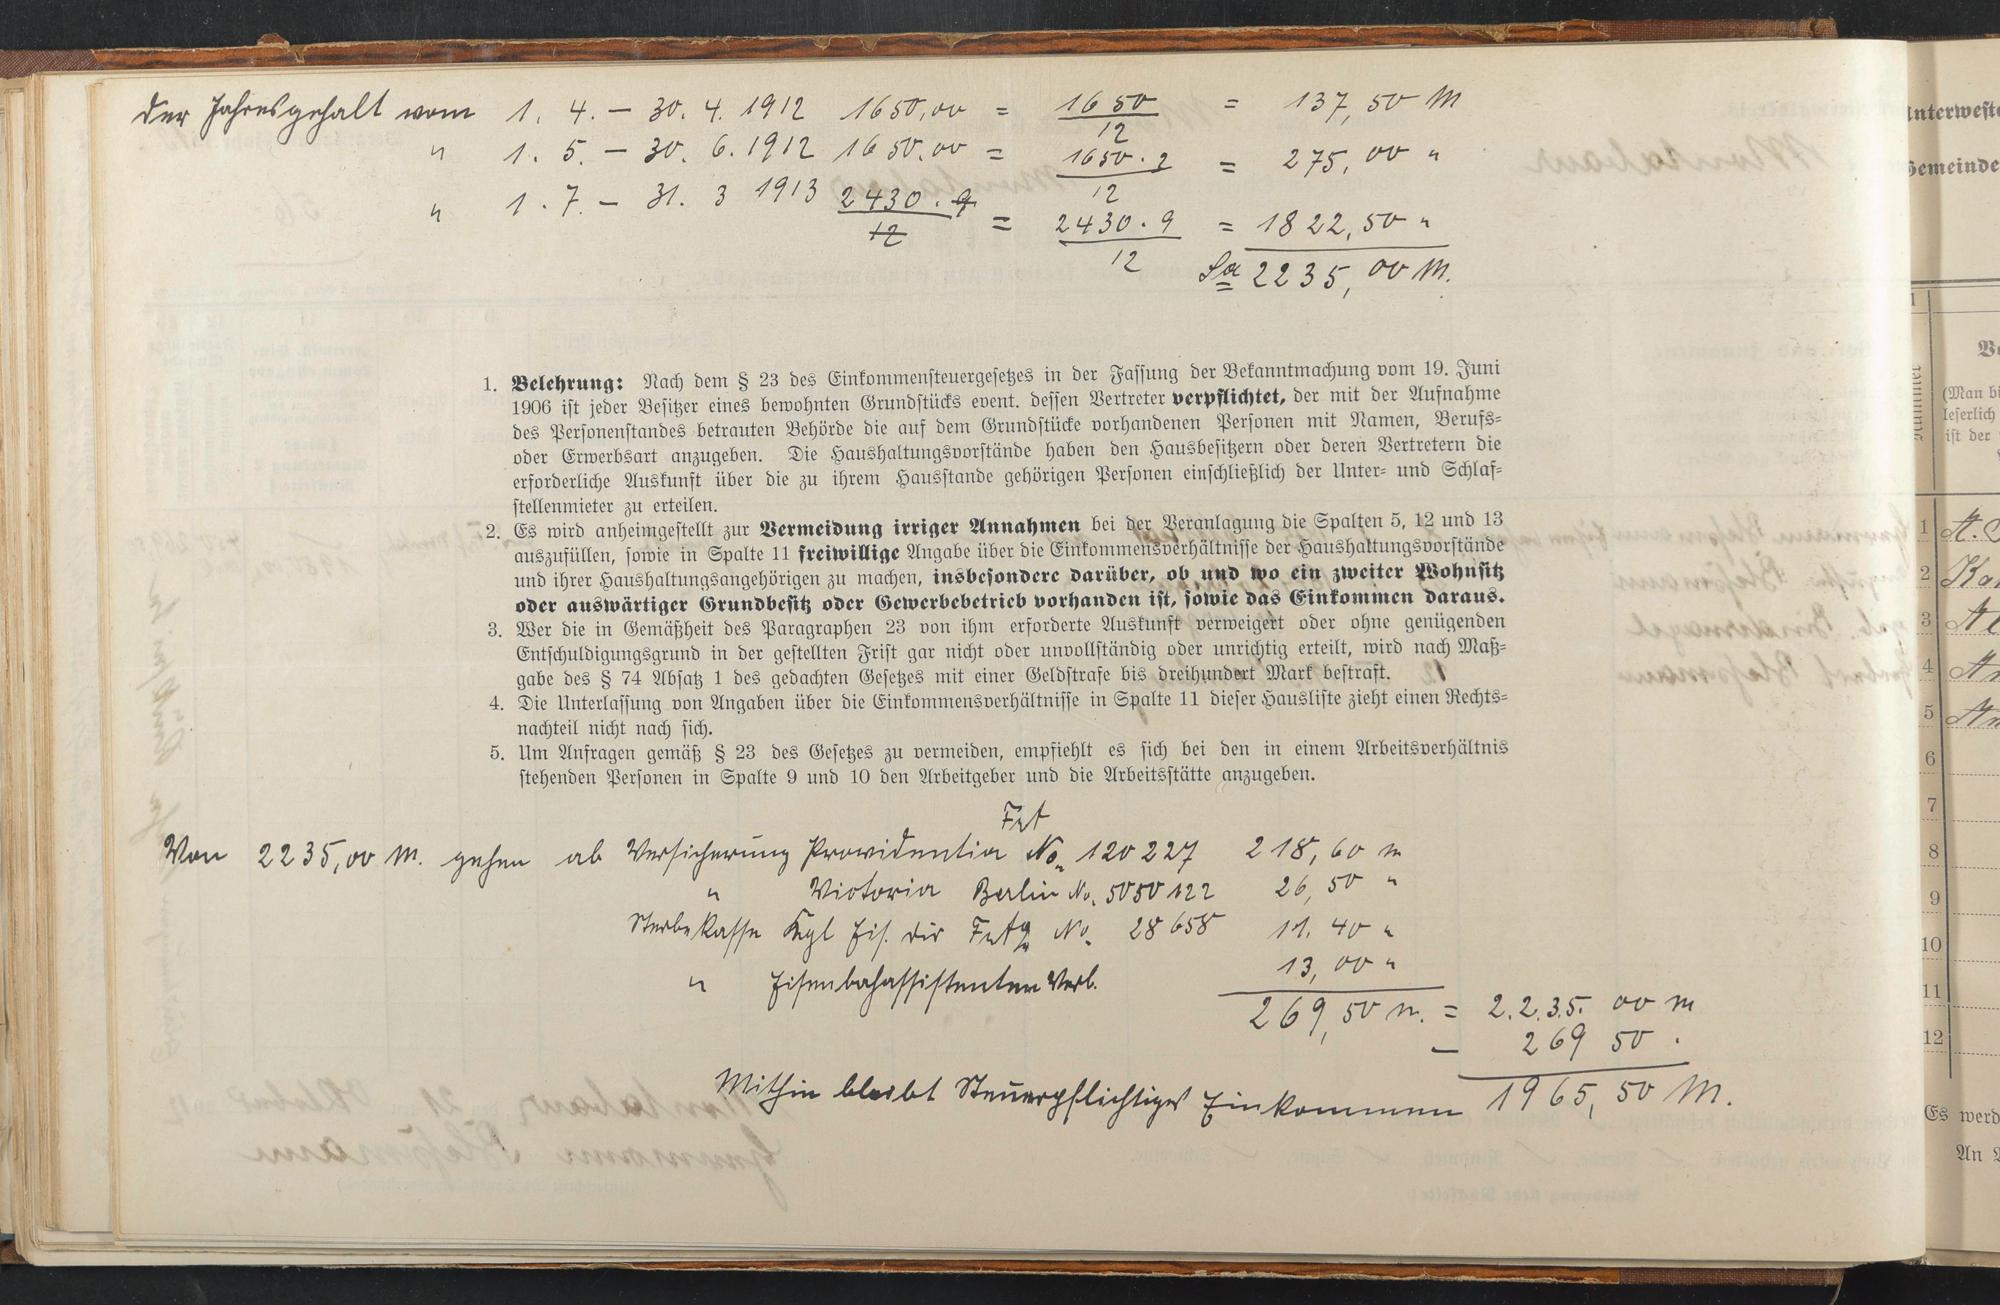 Der Jahresgehalt vom 1. 4. – 30. 4. 1912 1650,00 = 1650/12 = 137,50 M
" 1. 5. – 30. 6. 1912 1650.00 = 1650 · 2/12 = 275,00 "
" 1. 7. – 31. 3 1913 2430 · 9/12 = 2430 · 9/12 = 1822,50 "
Sa 2235,00 M.
1. Belehrung: Nach dem § 23 des Einkommensteuergesetzes in der Fassung der Bekanntmachung vom 19. Juni
1906 ist jeder Besitzer eines bewohnten Grundstücks event. dessen Vertreter verpflichtet, der mit der Aufnahme
des Personenstandes betrauten Behörde die auf dem Grundstücke vorhandenen Personen mit Namen, Berufs-
oder Erwerbsart anzugeben. Die Haushaltungsvorstände haben den Hausbesitzern oder deren Vertretern die
erforderliche Auskunft über die zu ihrem Hausstande gehörigen Personen einschließlich der Unter- und Schlaf-
stellenmieter zu erteilen.
2. Es wird anheimgestellt zur Vermeidung irriger Annahmen bei der Veranlagung die Spalten 5, 12 und 13
auszufüllen, sowie in Spalte 11 freiwillige Angabe über die Einkommensverhältnisse der Haushaltungsvorstände
und ihrer Haushaltungsangehörigen zu machen, insbesondere darüber, ob und wo ein zweiter Wohnsitz
oder auswärtiger Grundbesitz oder Gewerbebetrieb vorhanden ist, sowie das Einkommen daraus.
3. Wer die in Gemäßheit des Paragraphen 23 von ihm erforderte Auskunft verweigert oder ohne genügenden
Entschuldigungsgrund in der gestellten Frist gar nicht oder unvollständig oder unrichtig erteilt, wird nach Maß-
gabe des § 74 Absatz 1 des gedachten Gesetzes mit einer Geldstrafe bis dreihundert Mark bestraft.
4. Die Unterlassung von Angaben über die Einkommensverhältnisse in Spalte 11 dieser Hausliste zieht einen Rechts-
nachteil nicht nach sich.
5. Um Anfragen gemäß § 23 des Gesetzes zu vermeiden, empfiehlt es sich bei den in einem Arbeitsverhältnis
stehenden Personen in Spalte 9 und 10 den Arbeitgeber und die Arbeitsstätte anzugeben.
Von 2235,00 M. gehen ab Versicherung Providentia No. 120227 218,60 M
" Victoria Berlin No. 5050122 26,50 "
Sterbekasse Kgl Eis. Dir No. 28658 11.40 "
" Eisenbahassistenten Verb. 13,00 "
269,50 M. = 2.2.3.5. 00 M
– 269 50 .
Mithin bleibt Steuerpflichtiges Einkommen 1965,50 M.
Unterweste
Gemeinde
Nummer
(Man bi
leserlich
ist der
1 A.
2 Ka
3
4
5
6
7
8
9
10
11
12
Es werd
An